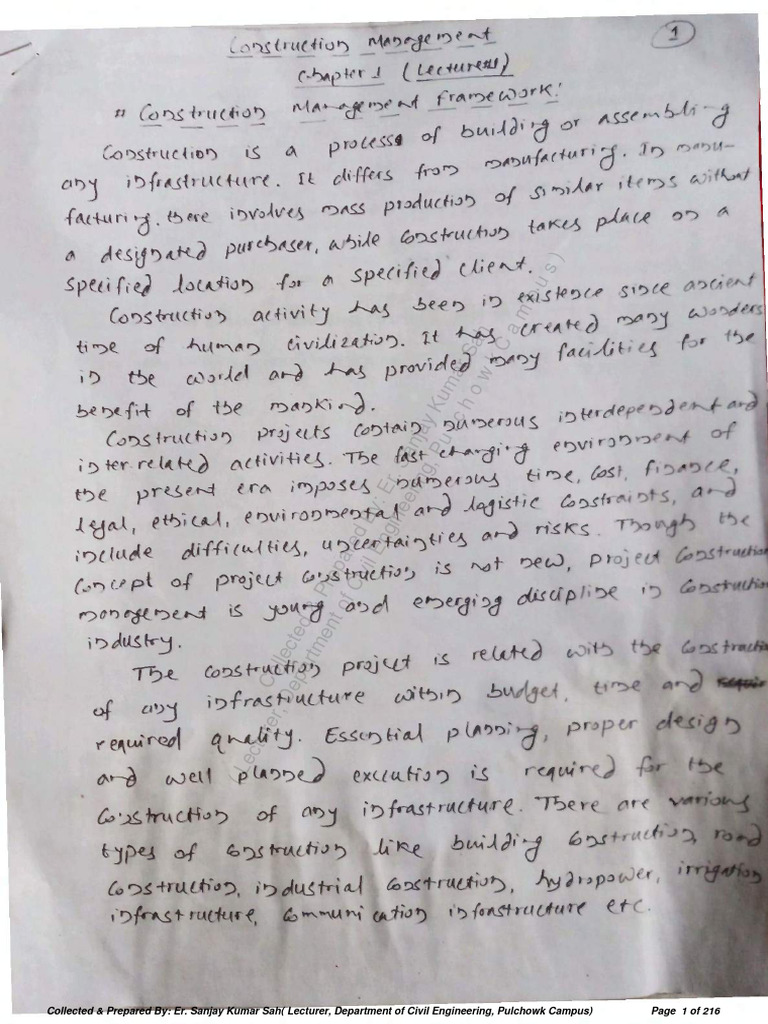 Construction Management
1
Chapter 1 (Lecture #1)
# Construction Management Framework:
Construction is a process of building or assembling
any infrastructure. It differs from manufacturing. In manu-
facturing, there involves mass production of similar items without
a designated purchaser, while construction takes place on a
specified location for a specified client.
Construction activity has been in existence since ancient
time of human civilization. It has created many wonders
in the world and has provided many facilities for the
benefit of the mankind.
Construction projects contain numerous interdependent and
inter-related activities. The fast changing environment of
the present era imposes numerous time, cost, finance,
legal, ethical, environmental and logistic constraints, and
include difficulties, uncertainties and risks. Though the
concept of project construction is not new, project construction
management is young and emerging discipline in construction
industry.
The construction project is related with the construction
of any infrastructure within budget, time and
required quality. Essential planning, proper design
and well planned execution is required for the
construction of any infrastructure. There are various
types of construction like building construction, road
construction, industrial construction, hydropower, irrigation
infrastructure, communication infrastructure etc.
Collected & Prepared By: Er. Sanjay Kumar Sah
(Lecturer, Department of Civil Engineering, Pulchowk Campus)
Collected & Prepared By: Er. Sanjay Kumar Sah( Lecturer, Department of Civil Engineering, Pulchowk Campus) Page 1 of 216